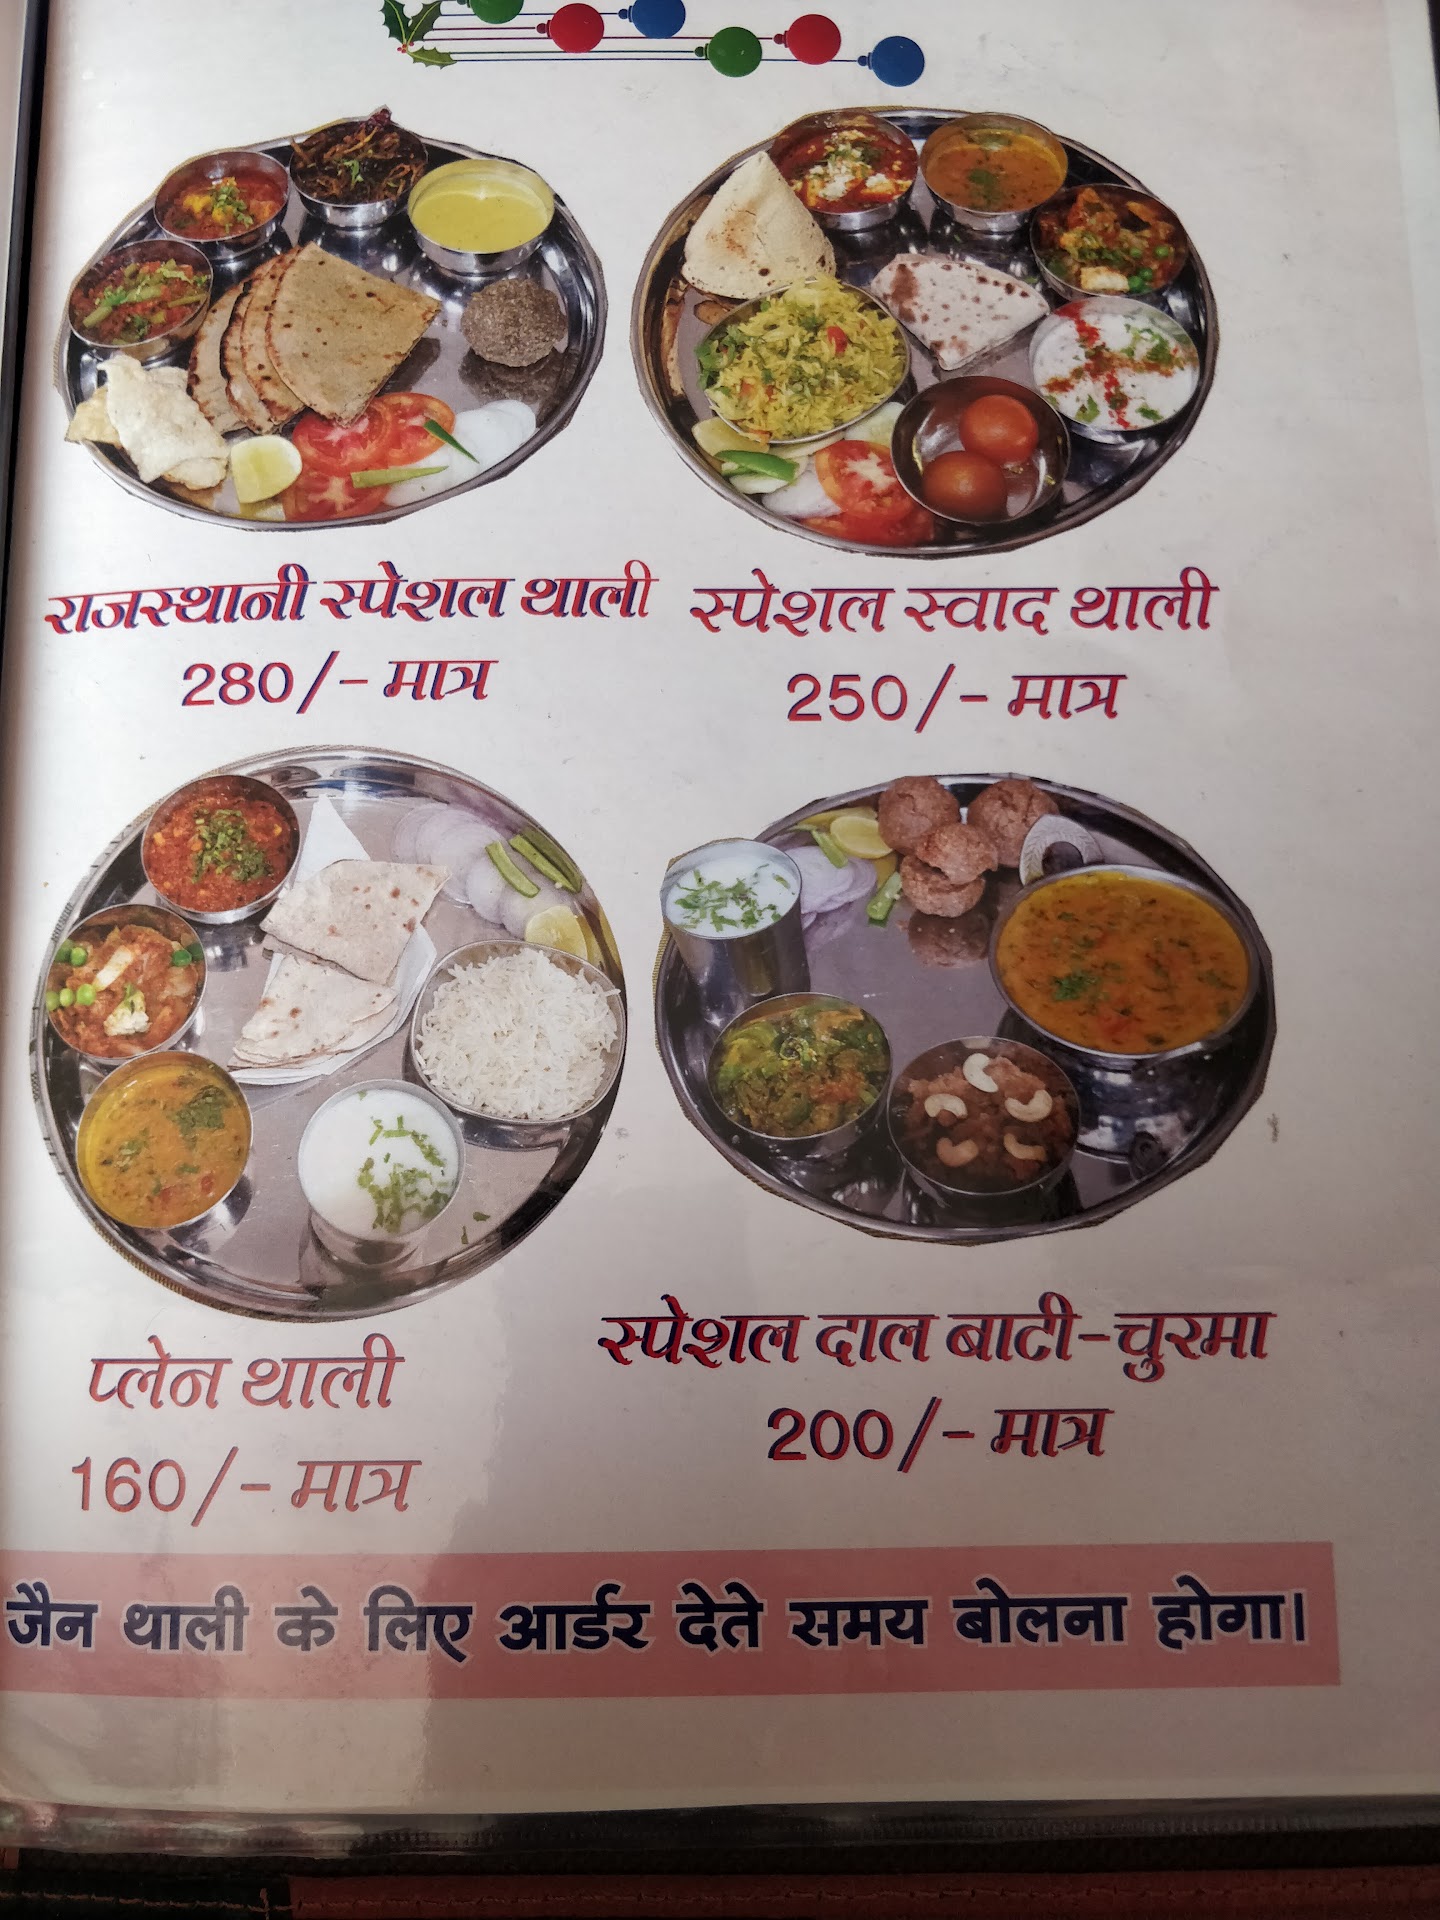 राजस्थानी स्पेशल थाली
280/- मात्र
स्पेशल स्वाद थाली
250/- मात्र
प्लेन थाली
160/- मात्र
स्पेशल दाल बाटी-चुरमा
200/- मात्र
जैन थाली के लिए आर्डर देते समय बोलना होगा।